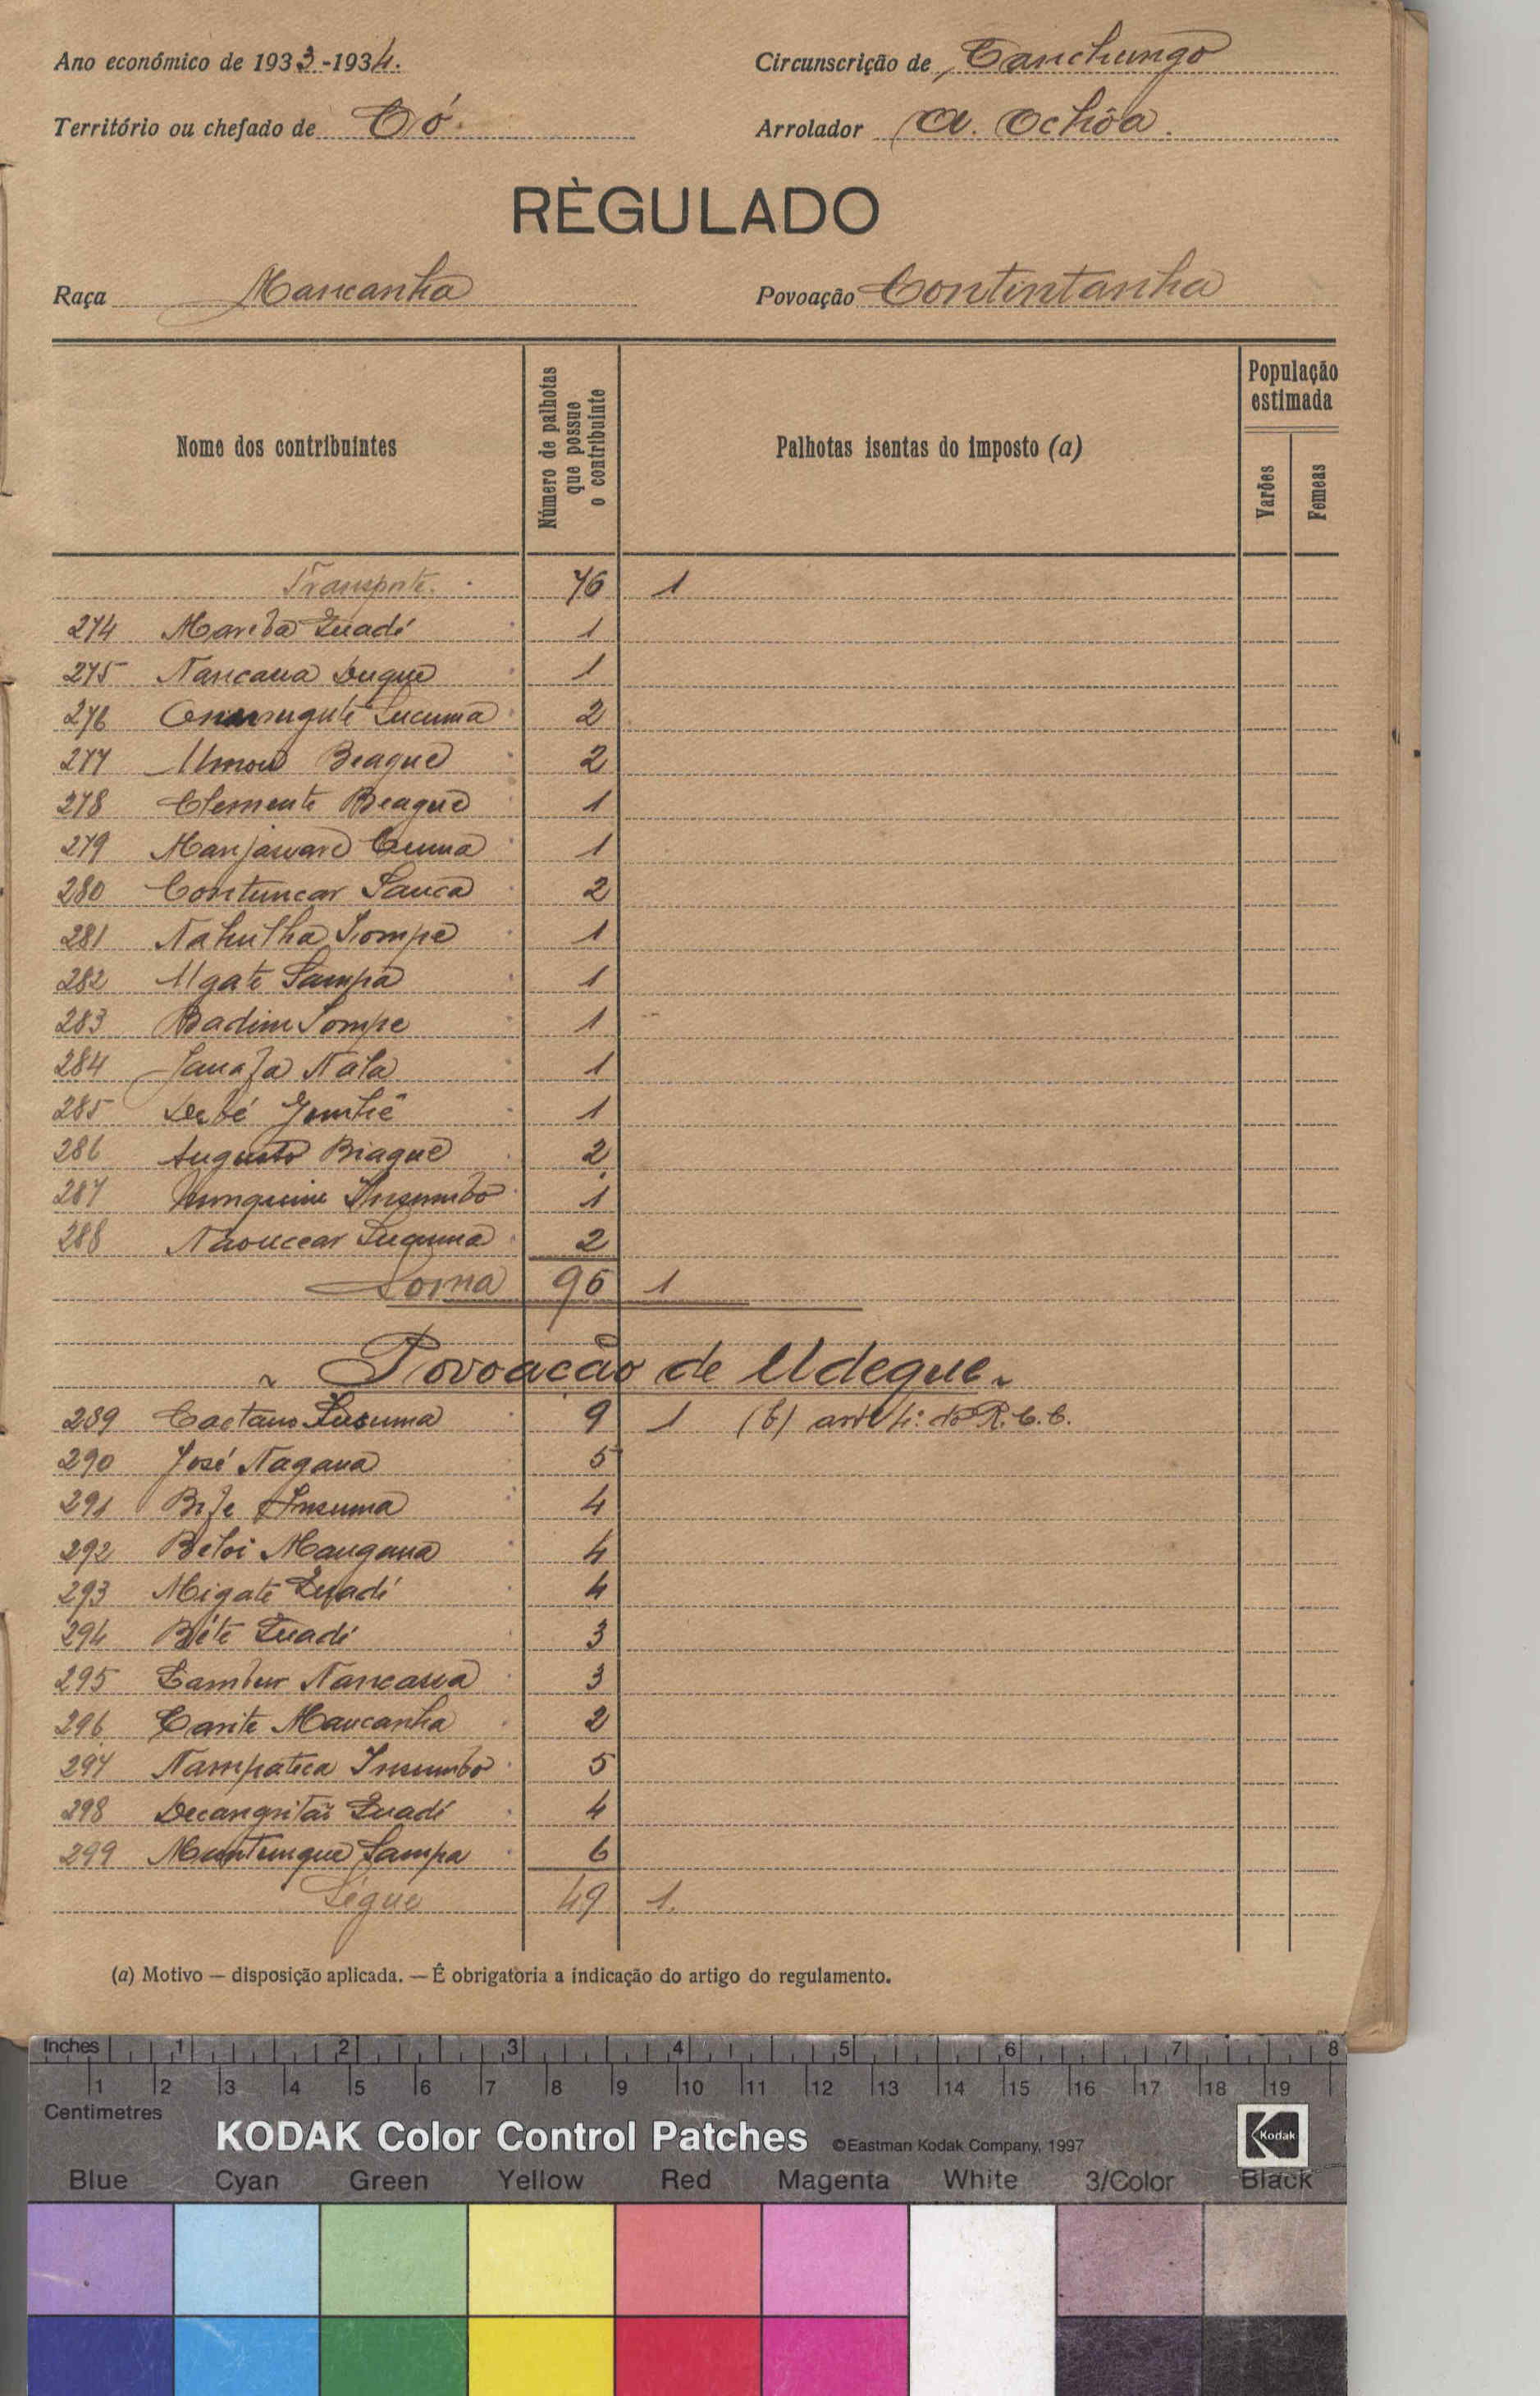 Ano económico de 1933-1934.
Circunscrição de Canchungo
Território ou chefado de Có.
Arrolador A. Ochôa.
RÈGULADO
Raça Mancanha
Povoação Contintanha
Nome dos contribuintes
Número de palhotas que possue o contribuinte
Palhotas isentas do imposto (a)
População estimada
Varões
Femeas
Transporte. 76 1
274 Mariba Quadé 1
275 Nancaua Duque 1
276 Lucuma 2
277 Umou Beaque 2
278 Clemente Beague 1
279 Manjauare Cuma 1
280 Contuncar Sanca 2
281 Nahulha Sompe 1
282 Ugate Sampa 1
283 Badim Sompe 1
284 Janafa Nala 1
285 1
286 Augusto Biague 2
287 Insumbo 1
288 2
Soma 95 1
Povoacão de Udegue.
289 Caetano Insuma 9 1 (b) art. 4º do R. C. C.
290 José Nagana 5
291 Bife Insuma 4
292 Betoi Mangana 4
293 Migate Quadé 4
294 Béte Quadé 3
295 Cambur Nancassa 3
296 Carite Mancanha 2
297 Nampatica Insumbo 5
298 Decangritão Quadé 4
299 Muntungue Sampa 6
Ségue 49 1.
(a) Motivo — disposição aplicada. — É obrigatoria a indicação do artigo do regulamento.
Inches 1 2 3 4 5 6 7 8
1 2 3 4 5 6 7 8 9 10 11 12 13 14 15 16 17 18 19
Centimetres
KODAK Color Control Patches ©Eastman Kodak Company, 1997 Kodak
Blue Cyan Green Yellow Red Magenta White 3/Color Black